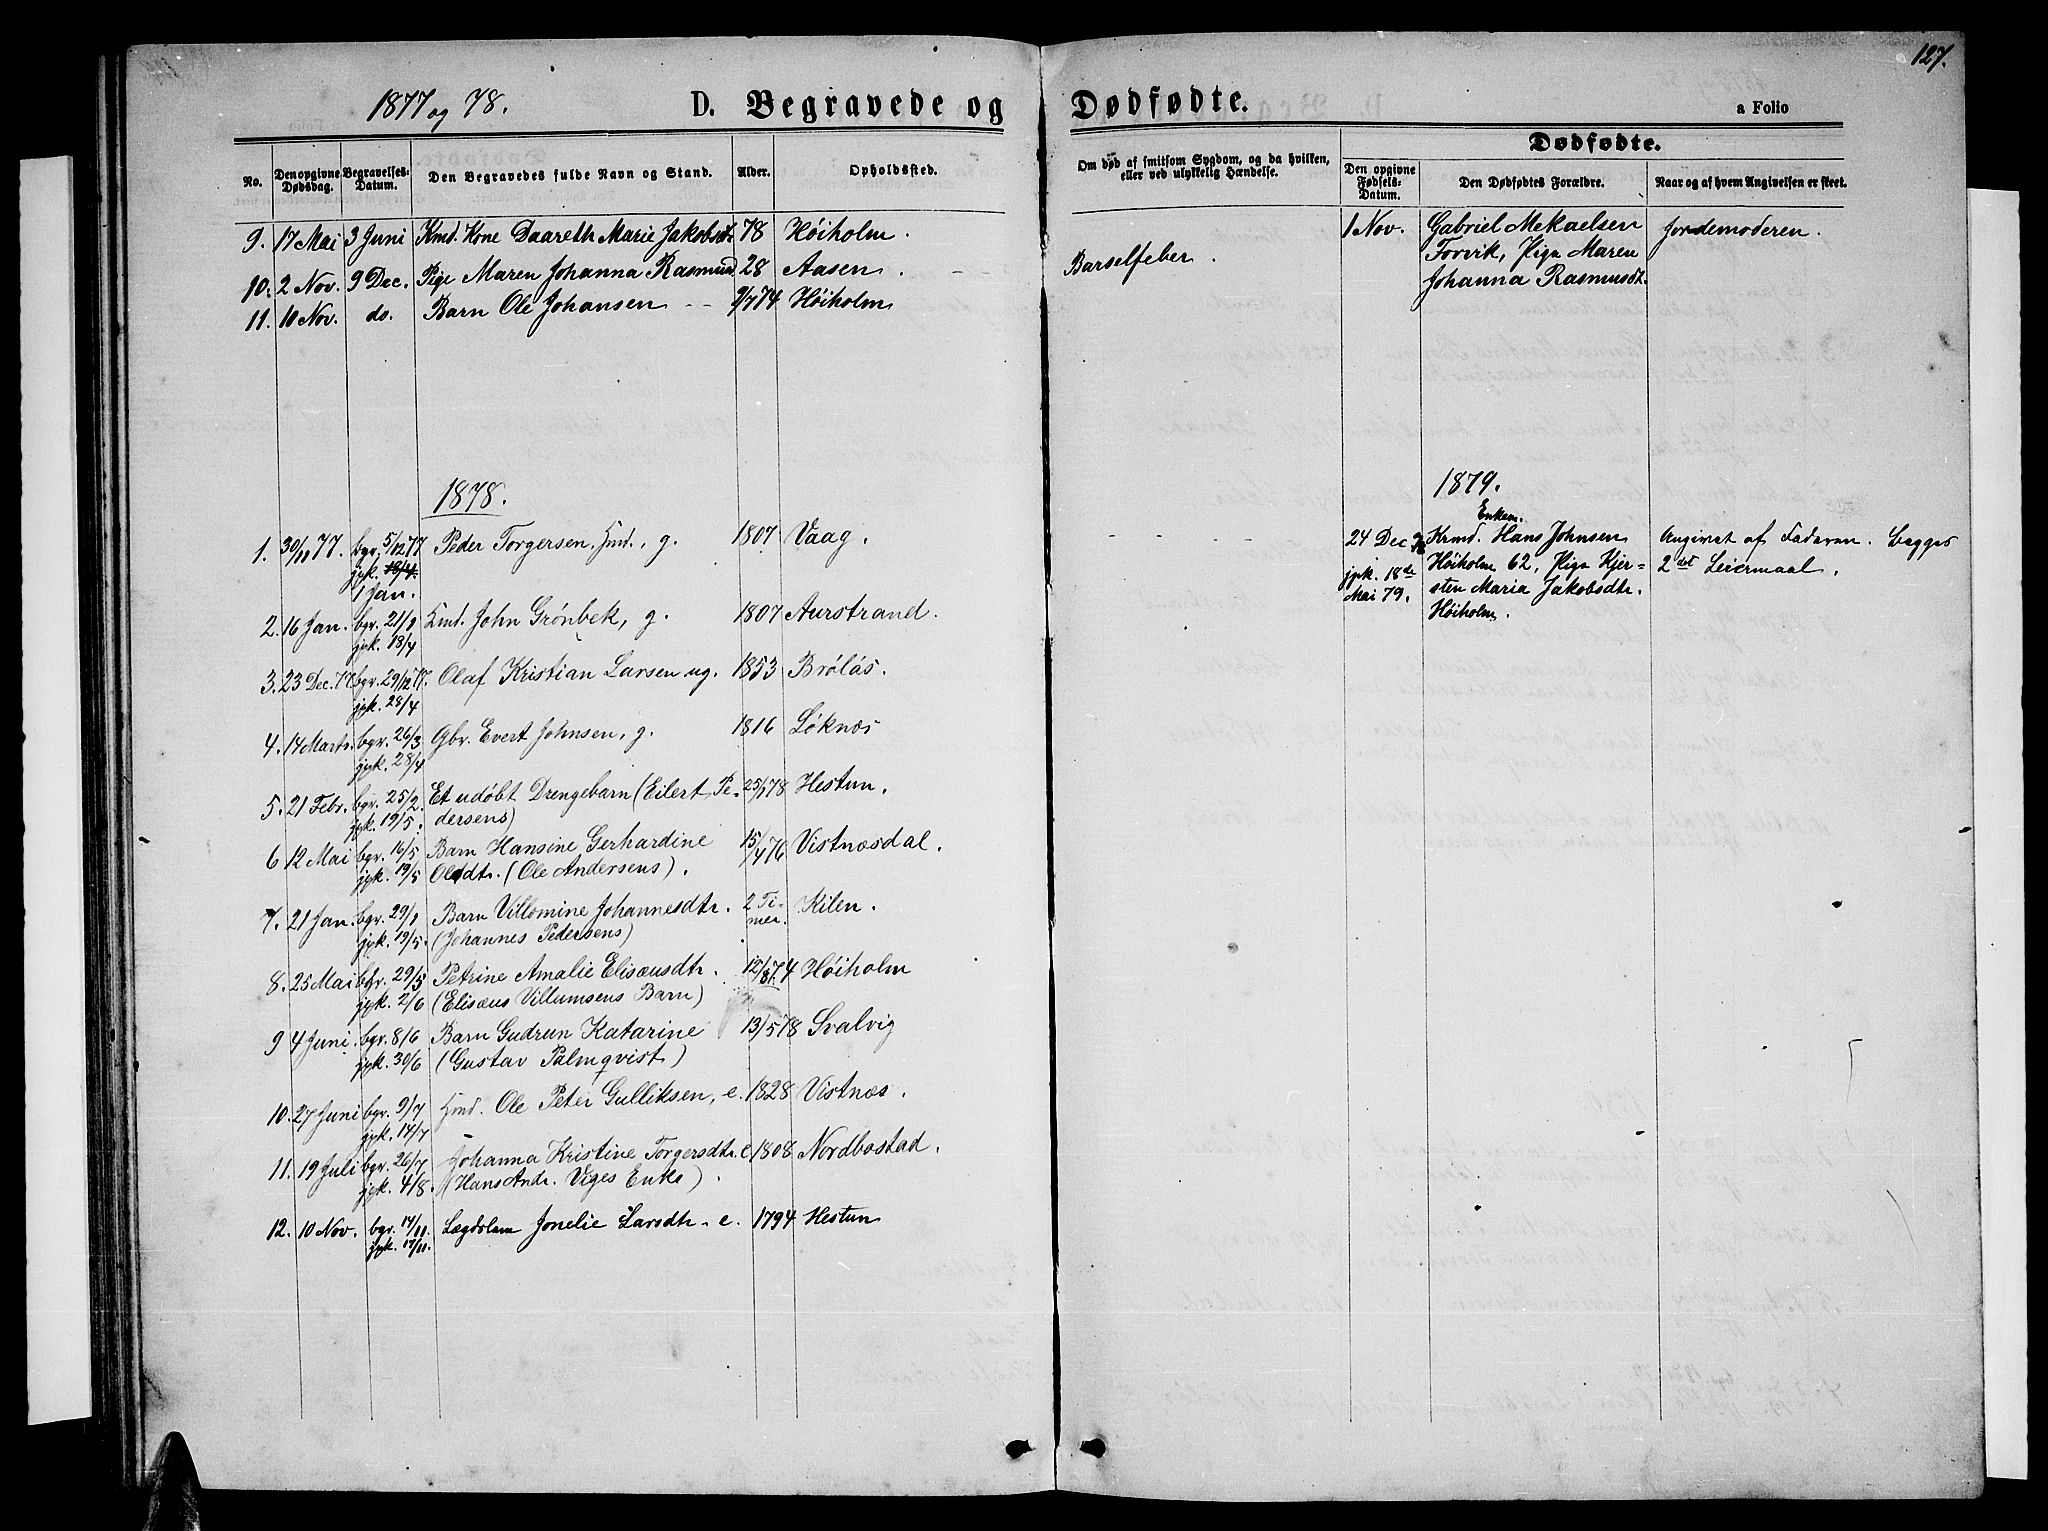 127.
1877 og 78.
D. Begravede og Dødfødte.
a Folio
Dødfødte.
No.
Den opgivne Dødsdag.
Begravelses-Datum.
Den Begravedes fulde Navn og Stand.
Alder.
Opholdssted.
Om død af smitsom Sygdom, og da hvilken,
eller ved ulykkelig Hændelse.
Den opgivne Fødsels-Datum.
Den Dødfødtes Forældre.
Naar og af hvem Angivelsen er skeet.
9. 17 Mai 3 Juni Kmd. Kone Daareth Marie Jakobsdt 78 Höiholm.
10. 2 Nov. 9 Dec. Pige Maren Johanna Rasmusd 28 Aasen. Barselfeber.
11. 10 Nov. do. Barn Ole Johansen 9/774 Höiholm
1 Nov. Gabriel Mekaelsen Jordemoderen.
Forvik, Pige Maren
Johanna Rasmusdt.
1878.
1. 30/11 77. bgr. 5/12 77 Peder Torgersen, Hmd., g. 1807 Vaag.
jpk. 18/4.
1 Jan.
2. 16 Jan. bgr. 21/1 Hmd. John Grönbek, g. 1807 Aurstrand.
jpk. 18/4
3. 23 Dec. 77 bgr. 29/12 77. Olaf Kristian Larsen ug. 1853 Brölös.
jpk. 28/4
4. 14 Marts. bgr. 26/3 Gbr. Evert Johnsen, g. 1816 Löknæs
jpk. 28/4
5. 21 Febr. bgr. 25/2. Et udöbt Drengebarn (Eilert Pe- 25/178 Hestun.
jpk. 19/5. dersens)
6 12 Mai bgr. 16/5 Barn Hansine Gerhardine 15/476 Vistnæsdal.
jpk. 19/5 Olsdtr. (Ole Andersens).
7. 21 Jan. bgr. 29/1 Barn Villomine Johannesdtr. 2 Ti- Kilen.
jpk. 19/5. (Johannes Pedersens) mer.
8. 25 Mai bgr. 29/5 Petrine Amalie Elisæusdtr. 12/874 Höiholm
jpk. 2/6 (Elisæus Villumsens Barn)
9 4 Juni. bgr. 8/6 Barn Gudrun Katarine 13/578 Svalvig
jpk. 30/6 (Gustav Palmqvist)
10. 27 Juni bgr. 9/7 Hmd. Ole Peter Gulliksen, e. 1828 Vistnæs.
jpk. 14/7
11. 19 Juli bgr. 26/7 Johanna Kristine Torgersdtr. e 1808 Nordbostad.
jpk. 4/8. (Hans Andr. Viges Enke).
12. 10 Nov. bgr. 14/11. Lægdslem Jonelie Larsdtr. e. 1794 Hestun
jpk. 17/11.
1879.
Enkem.
24 Dec 78 Krmd. Hans Johnsen Angivet af Faderen. Begges
jpk. 18de Höiholm 62, Pige Kjer- 2det Leiermaal.
Mai 79. sten Maria Jakobsdtr.
Höiholm.